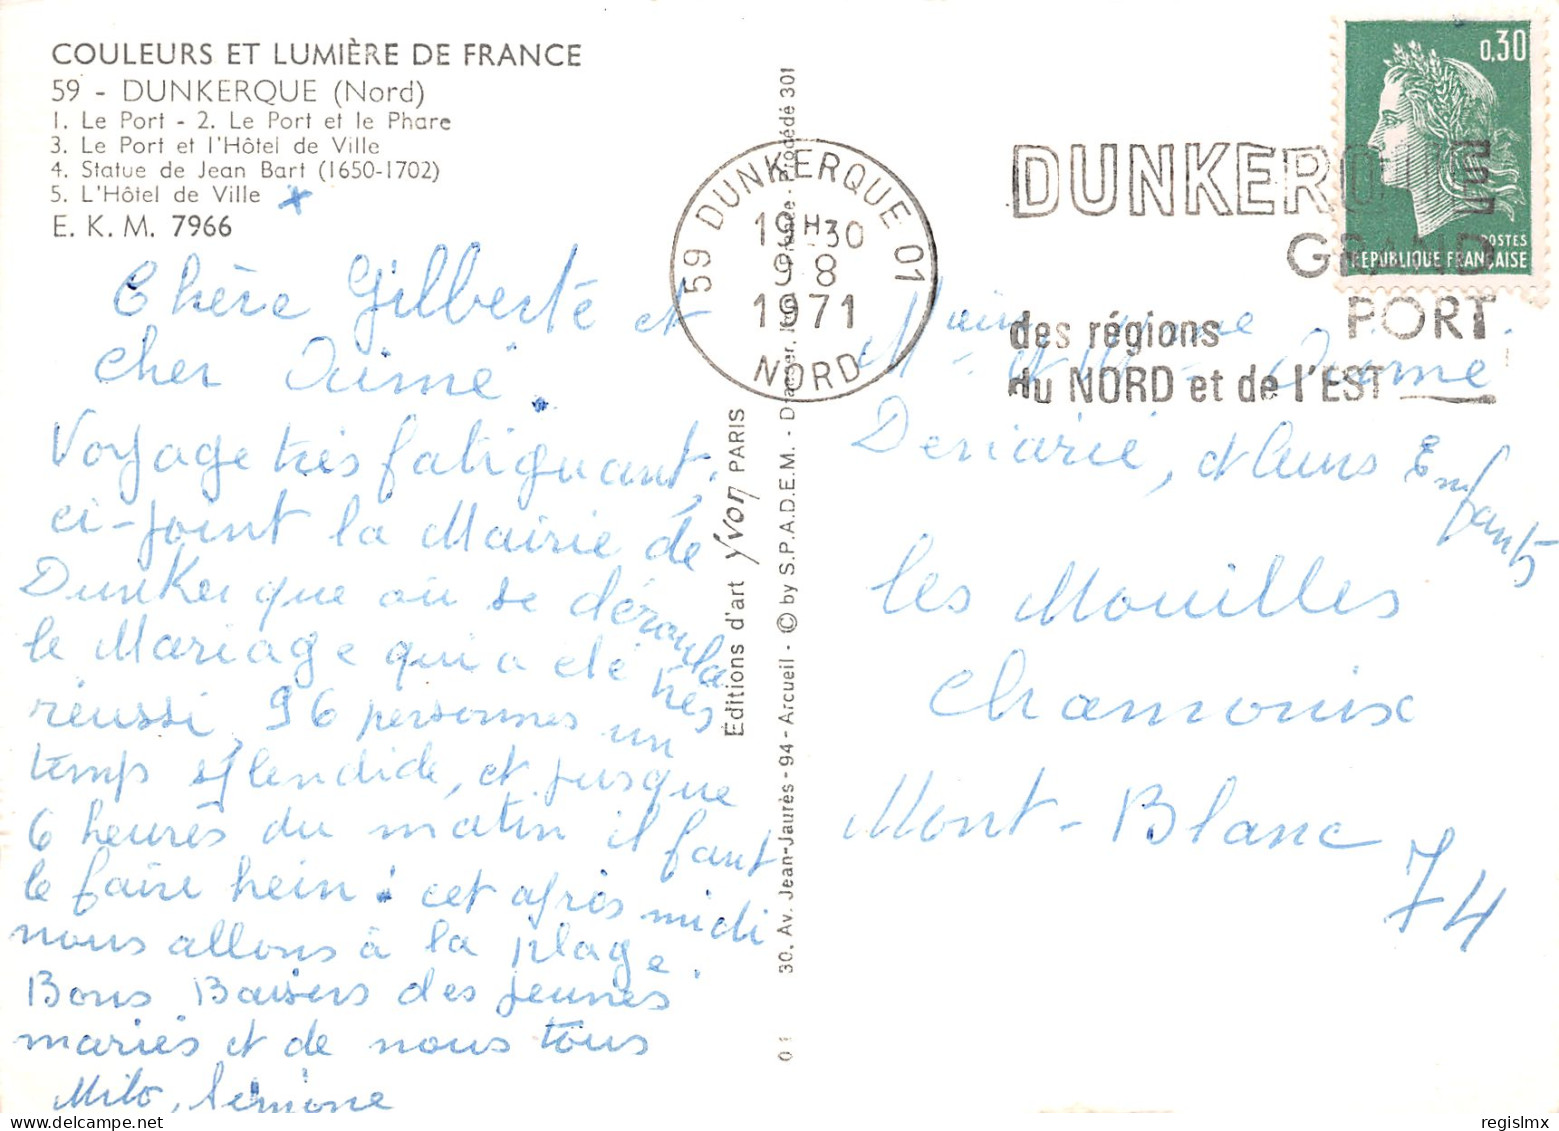 COULEURS ET LUMIÈRE DE FRANCE
59 - DUNKERQUE (Nord)
1. Le Port - 2. Le Port et le Phare
3. Le Port et l'Hôtel de Ville
4. Statue de Jean Bart (1650-1702)
5. L'Hôtel de Ville
E. K. M. 7966
Chère Gilberte et
cher Aimé.
Voyage très fatiguant,
ci-joint la Mairie de
Dunkerque où se déroula
le Mariage qui a été très
réussi, 96 personnes un
temps splendide, et jusque
6 heures du matin il faut
le faire hein! cet après midi
nous allons à la plage.
Bons Baisers des jeunes
mariés et de nous tous
Milo, Simone
Éditions d'art Yvon PARIS
30. Av. Jean-Jaurès - 94 - Arcueil - © by S.P.A.D.E.M. - Procédé 301
59 DUNKERQUE 01
19H30
9-8
1971
NORD
DUNKERQUE
GRAND
PORT
des régions
du NORD et de l'EST
0,30
POSTES
RÉPUBLIQUE FRANÇAISE
et leurs Enfants
Les Mouilles
Chamonix
Mont-Blanc
74
regislmx